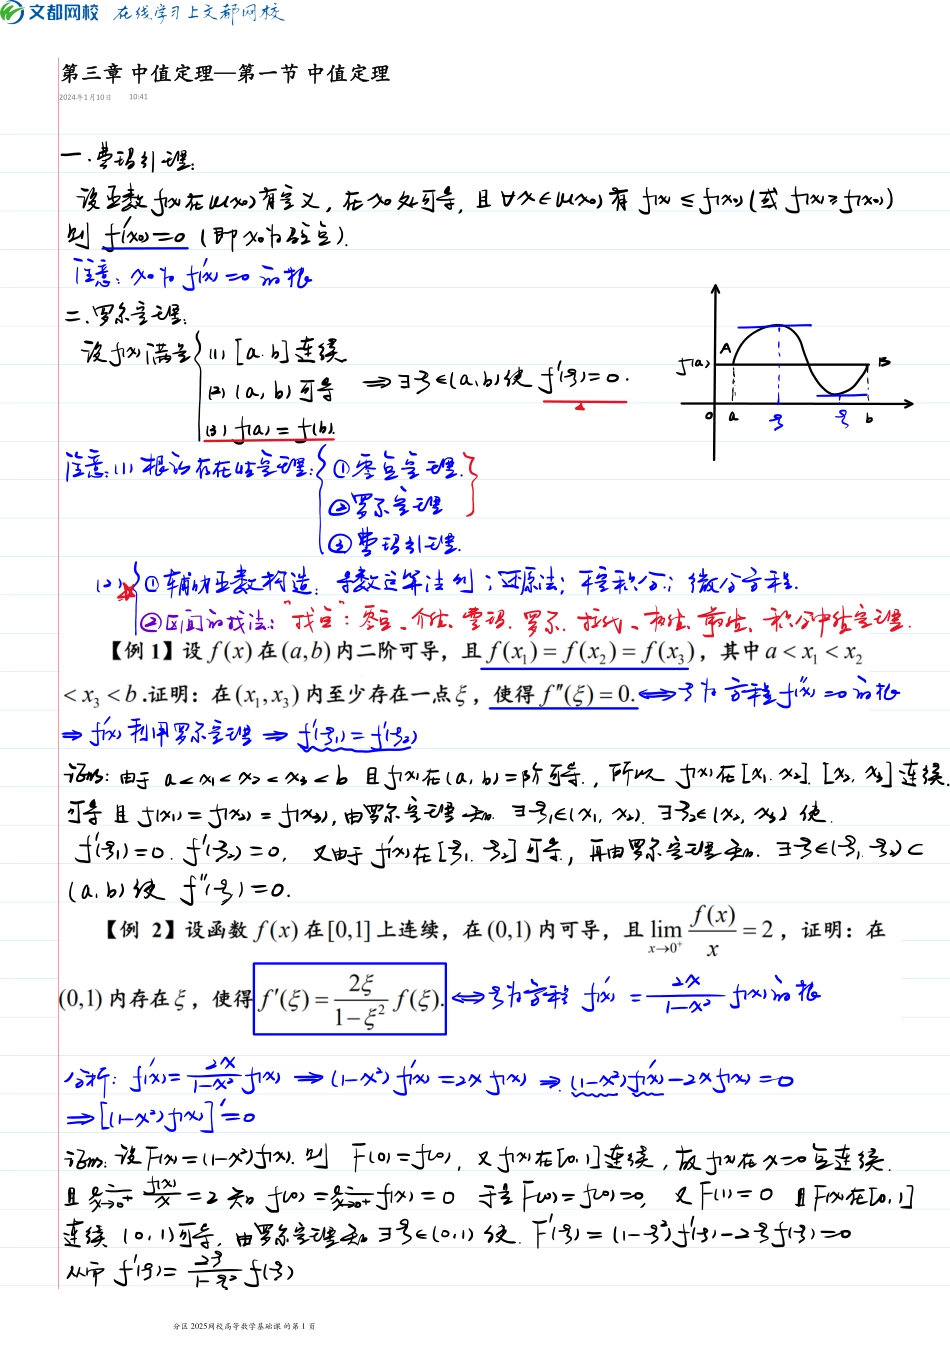 文都网校 在线学习上文都网校
第三章 中值定理—第一节 中值定理
2024年1月10日 10:41
一.费玛引理:
设函数f(x)在U(x₀)有定义,在x₀处可导,且∀x∈U(x₀)有 f(x)≤f(x₀)(或 f(x)≥f(x₀))
则 f'(x₀)=0 (即x₀为驻点).
注意: x₀为 f'(x)=0 的根
二.罗尔定理:
设f(x)满足{(1) [a.b]连续
(2) (a,b)可导 ⇒∃ξ∈(a,b)使 f'(ξ)=0.
(3) f(a)=f(b).
f(a) A B
o a ξ ξ b
注意:(1) 根的存在性定理:{①零点定理.
②罗尔定理
③费玛引理.
(2){①辅助函数构造: 导数运算法则;还原法;不定积分;微分方程.
②区间的找法: "找点": 零点、介值、费玛、罗尔、拉氏、柯西、泰勒、积分中值定理.
【例 1】设 f(x) 在 (a,b) 内二阶可导,且 f(x₁)=f(x₂)=f(x₃),其中 a<x₁<x₂
<x₃<b.证明:在 (x₁,x₃) 内至少存在一点 ξ,使得 f''(ξ)=0. ⇔ξ为方程f''(x)=0的根
⇒f'(x)利用罗尔定理⇒ f'(ξ₁)=f'(ξ₂)
证明: 由于 a<x₁<x₂<x₃<b 且f(x)在(a,b)二阶可导.,所以 f(x)在[x₁.x₂].[x₂,x₃]连续.
可导 且 f(x₁)=f(x₂)=f(x₃),由罗尔定理知. ∃ξ₁∈(x₁,x₂).∃ξ₂∈(x₂,x₃)使.
f'(ξ₁)=0. f'(ξ₂)=0, 又由于 f'(x)在[ξ₁.ξ₂]可导,再由罗尔定理知. ∃ξ∈(ξ₁,ξ₂)⊂
(a.b)使 f''(ξ)=0.
【例 2】设函数 f(x) 在 [0,1] 上连续,在 (0,1) 内可导,且 lim_{x→0⁺} f(x)/x = 2,证明:在
(0,1) 内存在 ξ,使得 f'(ξ)=2ξ/(1-ξ²) f(ξ). ⇔ξ为方程 f'(x)=2x/(1-x²) f(x)的根
分析: f'(x)=2x/(1-x²) f(x) ⇒(1-x²)f'(x)=2x f(x) ⇒ (1-x²)f'(x)-2xf(x)=0
⇒[(1-x²)f(x)]'=0
证明: 设F(x)=(1-x²)f(x). 则 F(0)=f(0), 又f(x)在[0,1]连续,故f(x)在x=0点连续.
且 lim_{x→0⁺} f(x)/x =2 知 f(0)=lim_{x→0⁺} f(x)=0 于是F(0)=f(0)=0, 又F(1)=0 且F(x)在[0,1]
连续 (0,1)可导,由罗尔定理知∃ξ∈(0,1)使. F'(ξ)=(1-ξ²)f'(ξ)-2ξf(ξ)=0
从而 f'(ξ)=2ξ/(1-ξ²) f(ξ)
分区 2025网校高等数学基础课 的第 1 页